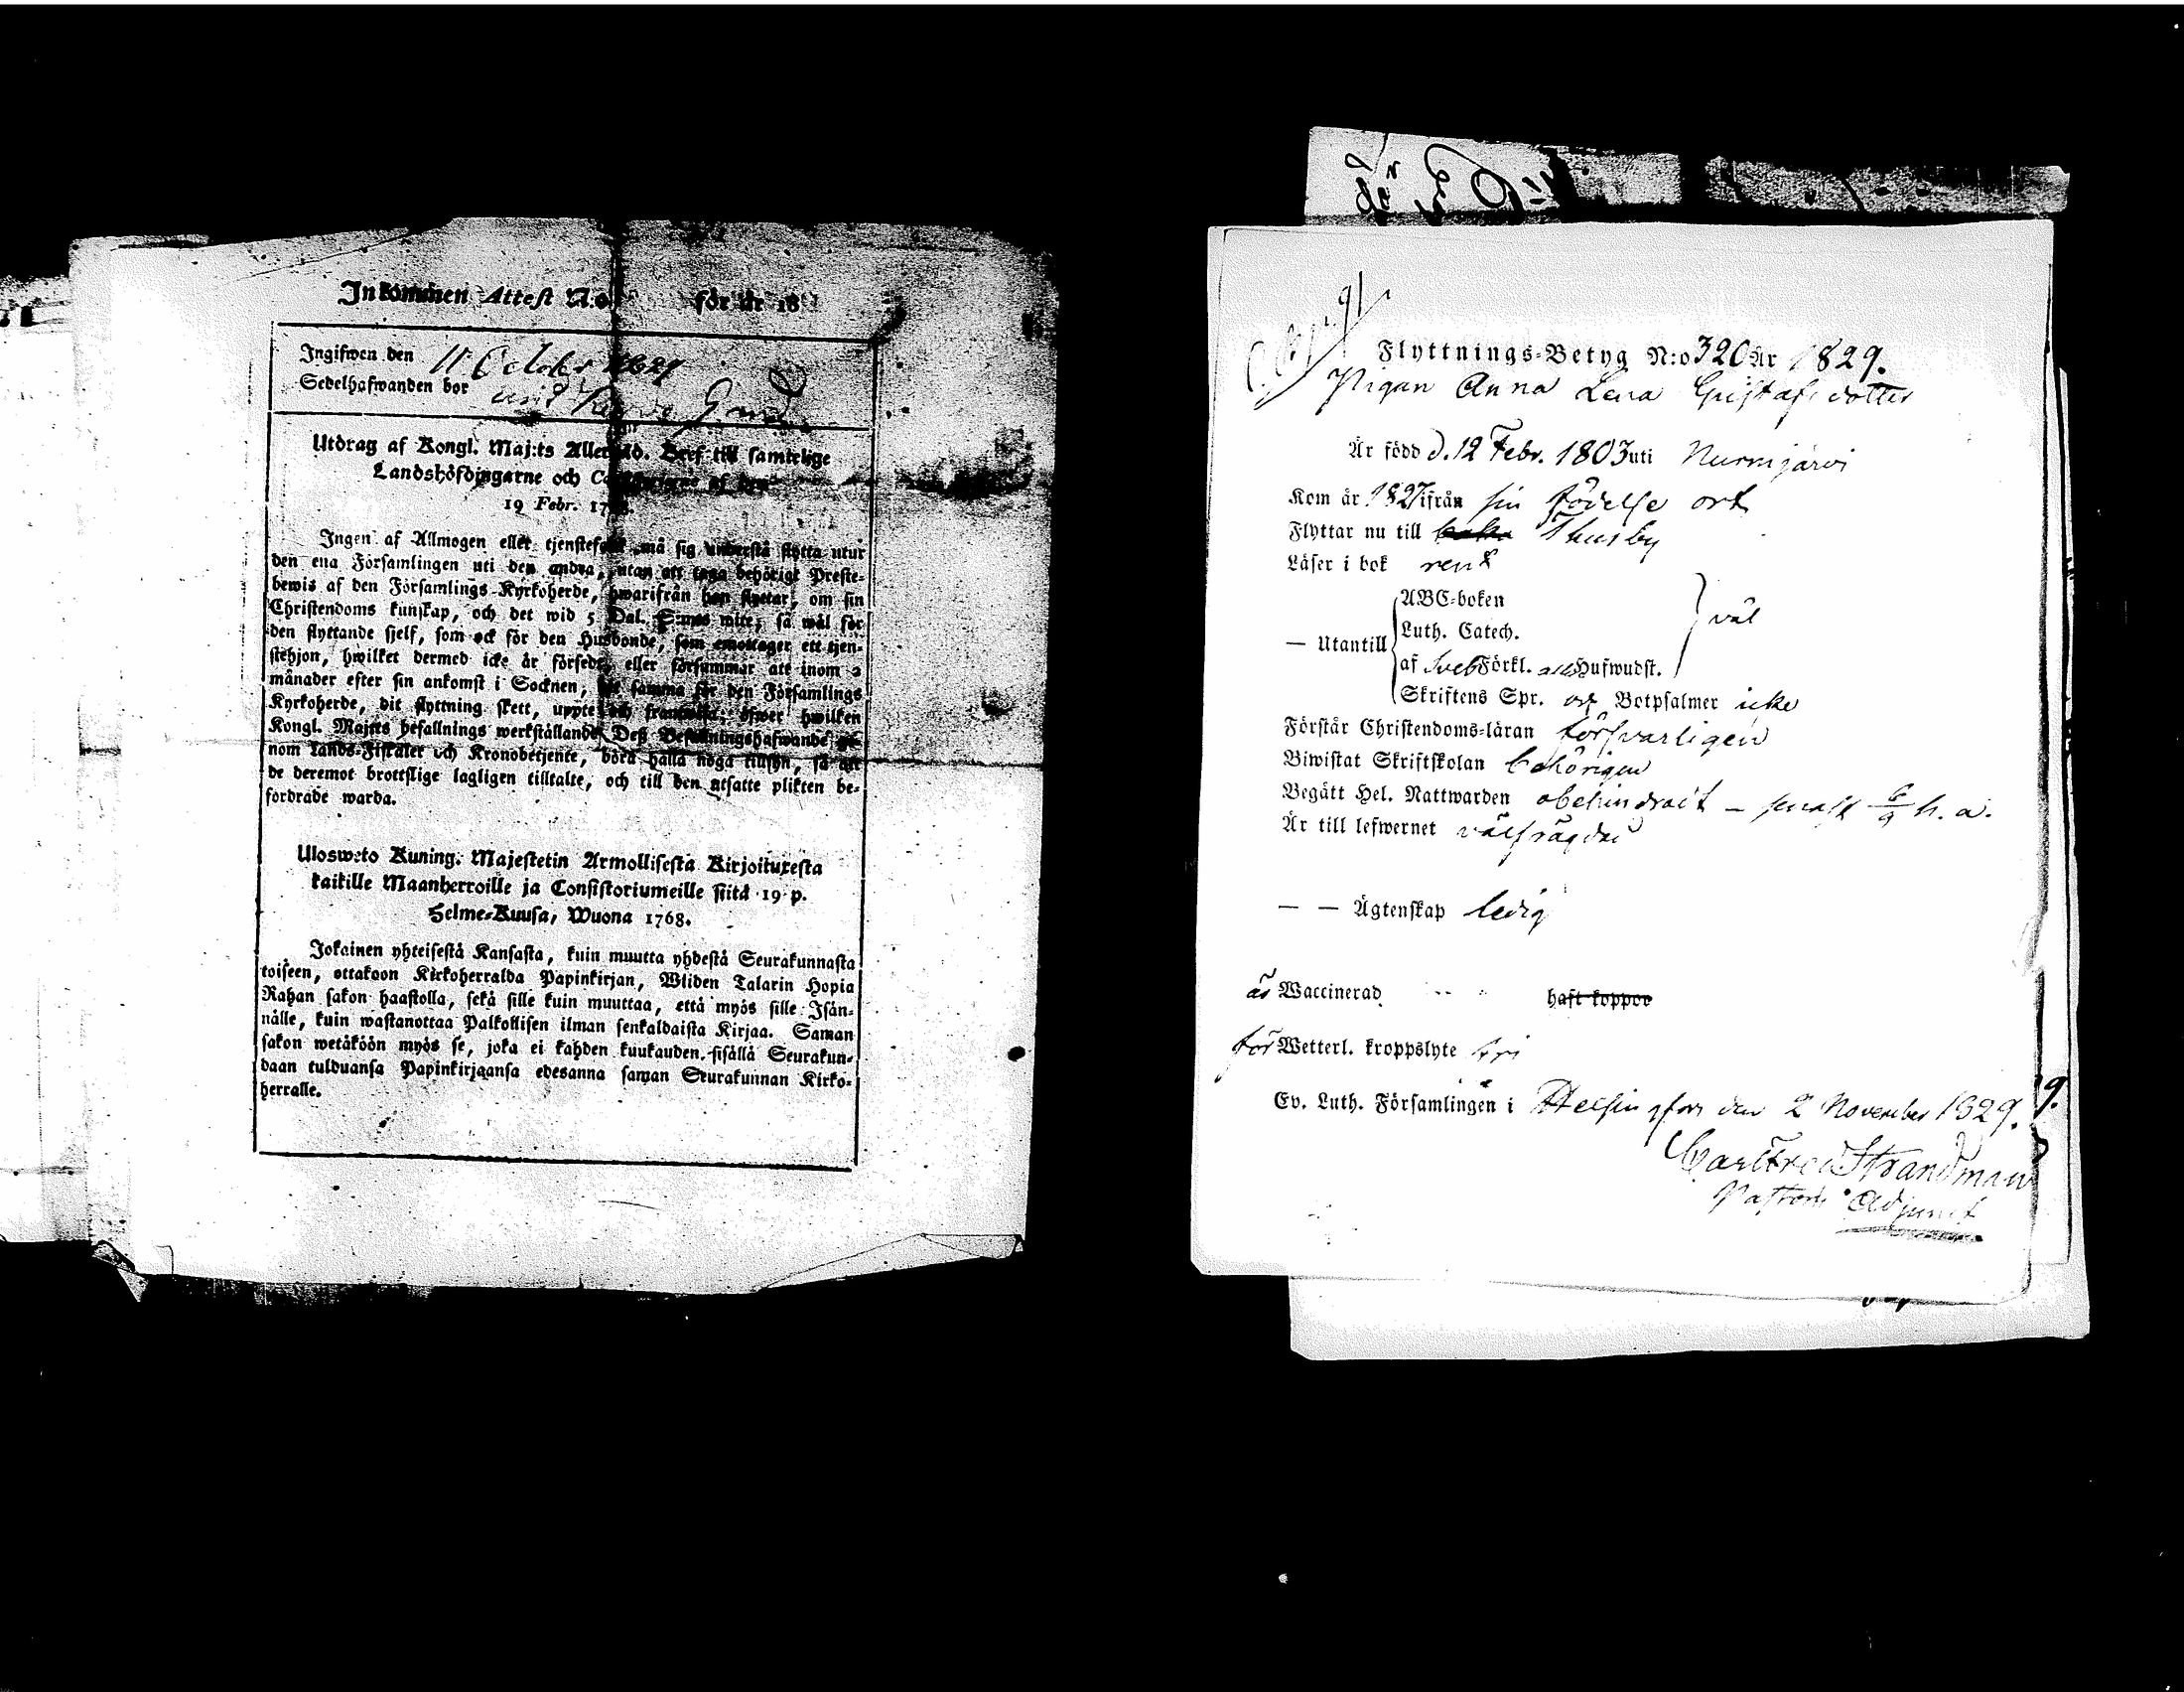 Inkommen Attest N:o för år 18
Ingifwen den 11 October 1829
Sedelhafwanden bor
Utdrag af Kongl. Maj:ts Allernåd. Bref till samtelige
Landshöfdingarne och
19 Febr. 17
Ingen af Allmogen eller tjenstefolk må sig understå flytta utur
den ena Församlingen uti den andra, utan att taga behörigt Preste-
bewis af den Församlings-Kyrkoherde, hwarifrån han flyttar, om sin
Christendoms kunskap, och det wid 5 Dal. S:mts wite, så wäl för
den flyttande sjelf, som ock för den Husbonde, som emottager ett tjen-
stehjon, hwilket dermed icke är försedt, eller försummar att inom 2
månader efter sin ankomst i Socknen, samma för den Församlings
Kyrkoherde, dit flyttning skett, uppte och framwisa; öfwer hwilken
Kongl. Maj:ts befallnings werkställande Deß Befallningshafwande ge-
nom Lands-Fiskaler och Kronobetjente, böra hålla noga tillsyn, så att
de deremot brottslige lagligen tilltalte, och till den utsatte plikten be-
fordrade warda.
Uloswcto Kuning. Majestetin Armollisesta Kirjoituxesta
kaikille Maanherroille ja Consistoriumeille siitä 19 p.
Helme-Kuusa, Wuona 1768.
Jokainen yhteisestä Kansasta, kuin muutta yhdestä Seurakunnasta
toiseen, ottakoon Kirkoherralda Papinkirjan, Wiiden Talarin Hopia
Rahan sakon haastolla, sekä sille kuin muuttaa, että myös sille Isän-
nälle, kuin wastanottaa Palkollisen ilman senkaldaista Kirjaa. Saman
sakon wetäköön myös se, joka ei kahden kuukauden sisällä Seurakun-
daan tulduansa Papinkirjaansa edesanna saman Seurakunnan Kirko-
herralle.
Flyttnings-Betyg N:o 320 År 1829.
Pigan Anna Lena Gustafsdotter
Är född d. 12 Febr. 1803 uti Nurmijärvi
Kom år 1827 ifrån sin födelse ort
Flyttar nu till Thusby
Läser i bok rent
ABC-boken
Luth. Catech. väl
— Utantill
af Sveb Förkl. all Hufwudst.
Skriftens Spr. och Botpsalmer icke
Förstår Christendoms-läran försvarligen
Biwistat Skriftskolan behörigen
Begått Hel. Nattwarden obehindradt – senast 6/9 h. a.
Är till lefwernet välfrägdad
— — Ägtenskap ledig
är Waccinerad haft koppor
för Wetterl. kroppslyte fri
Ev. Luth. Församlingen i Helsingfors den 2 November 1829.
Carl Fred Strandman
Pastors Adjunct